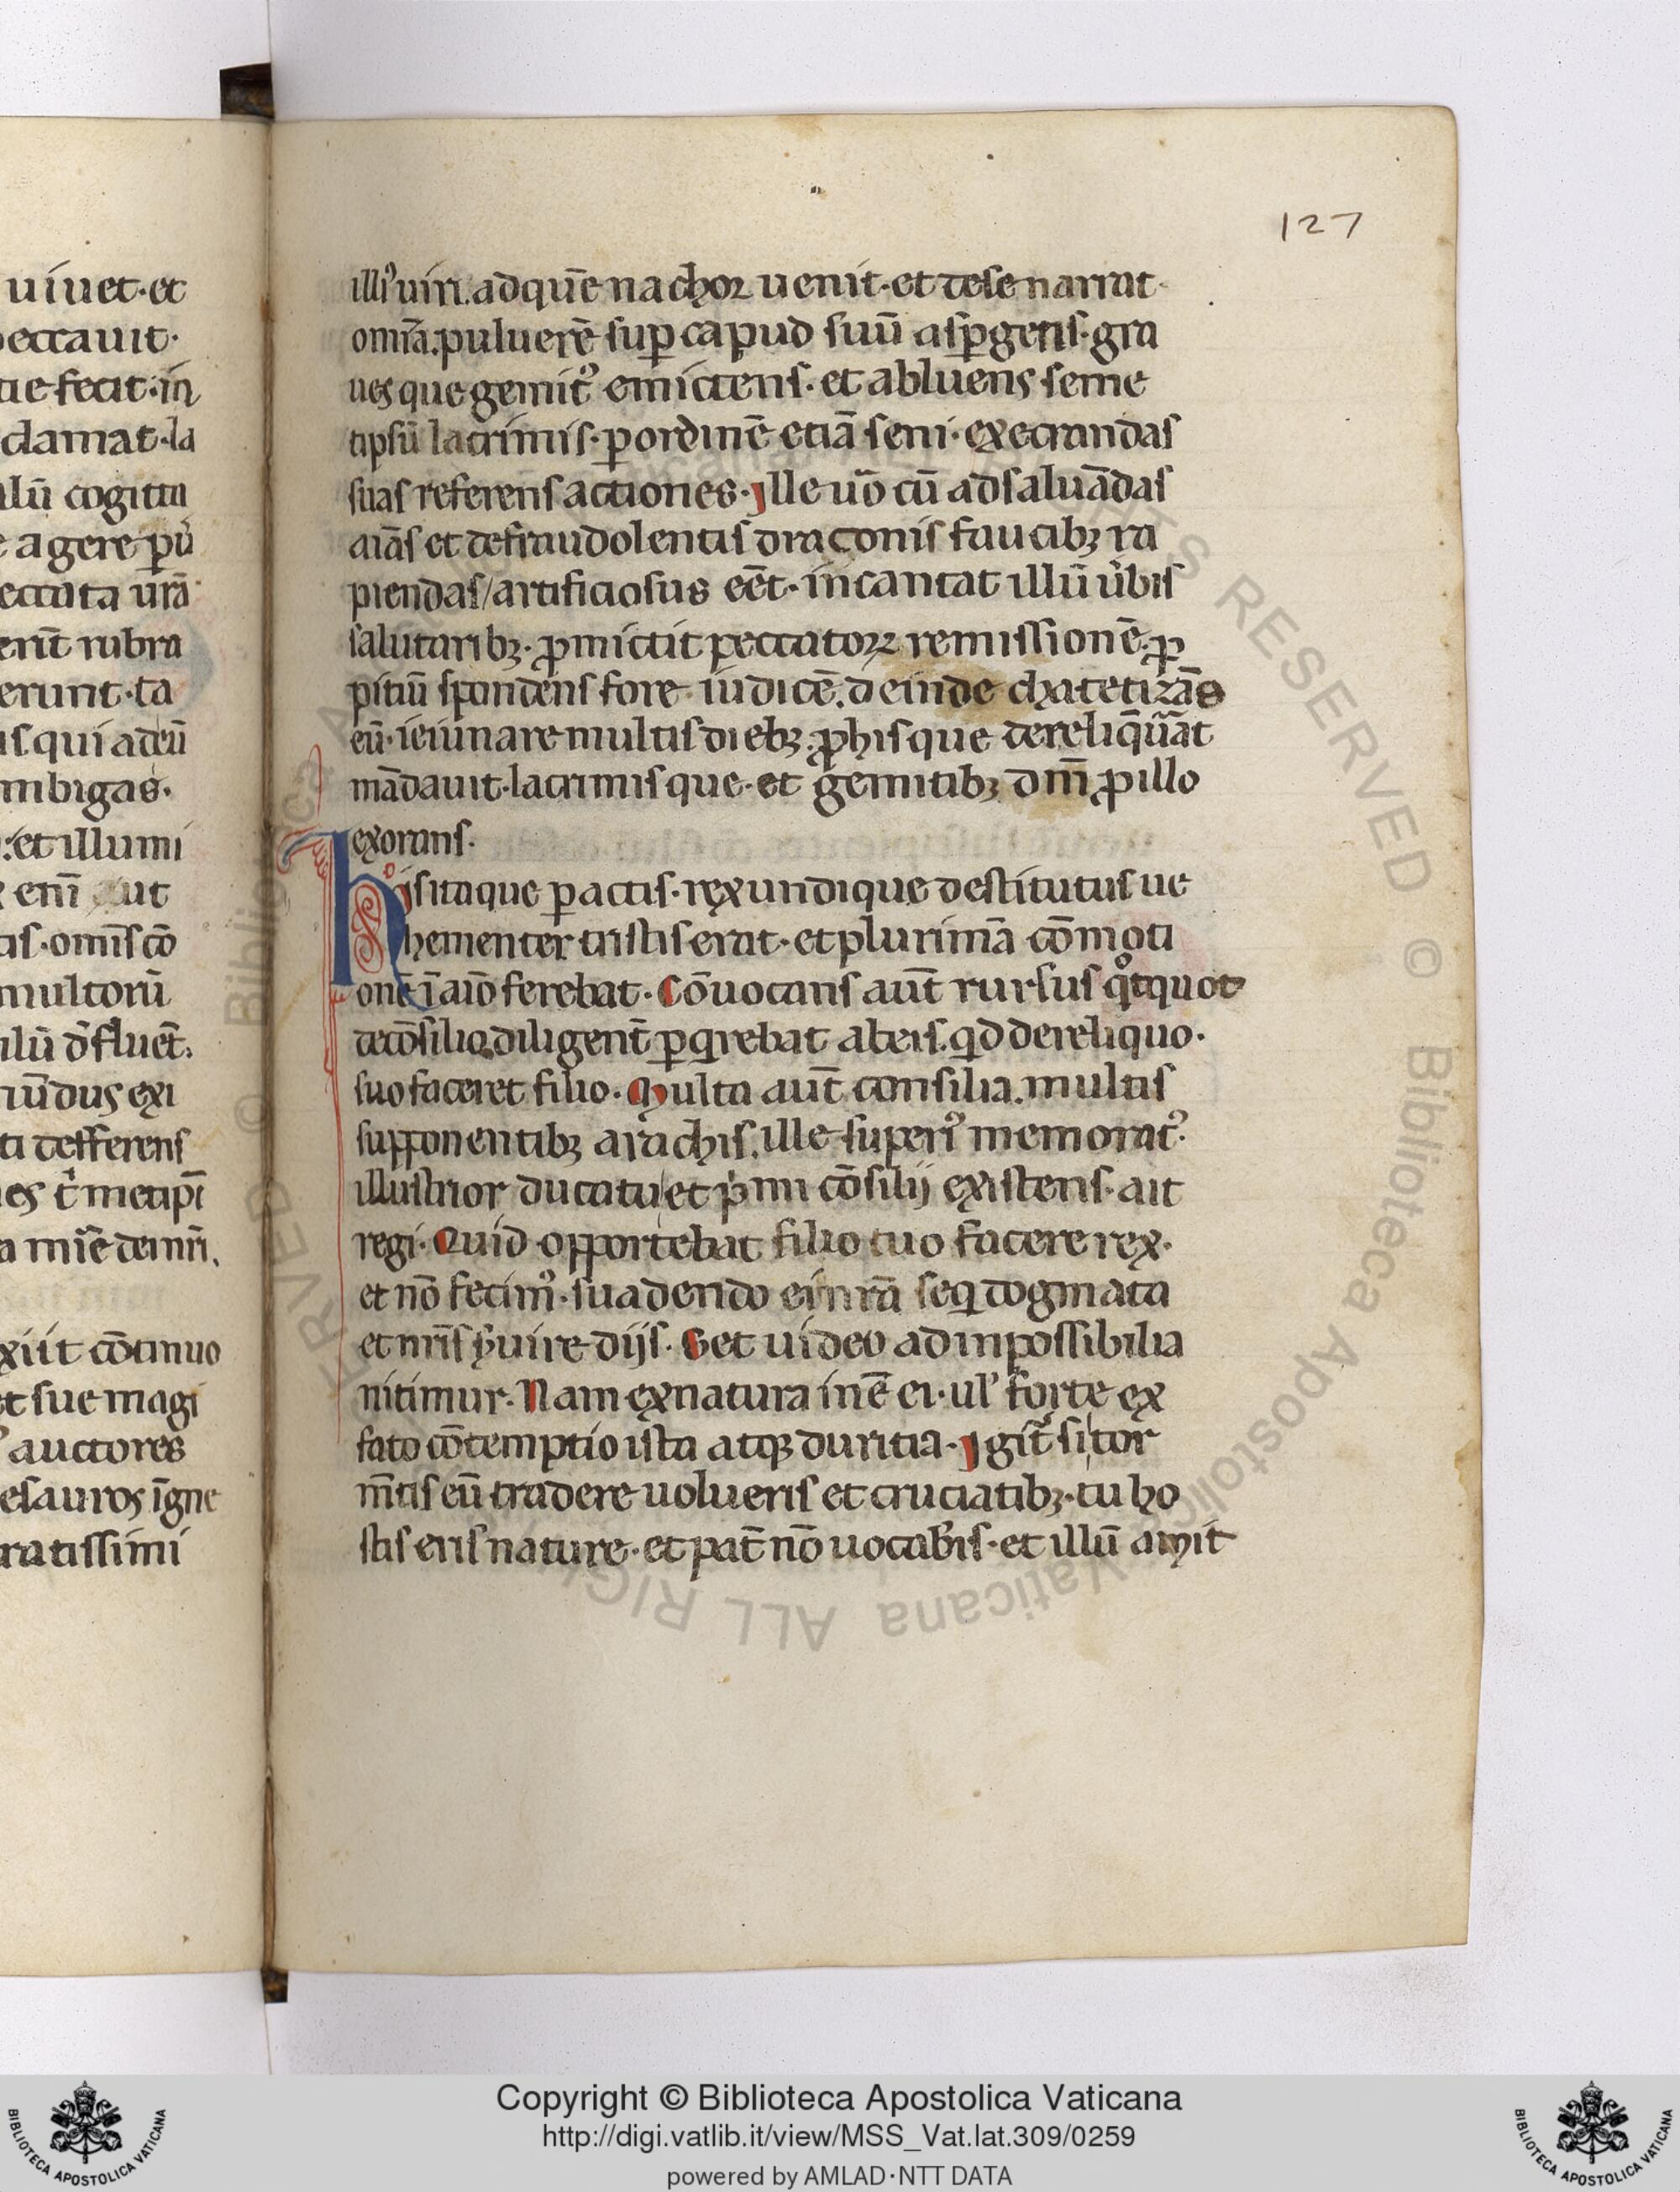 uiuet·et
eccauit·
ue fecit·in
clamat·la
ilū cogitta
e agere pù
eccata urā·
erit̄ rubra
erunt·ta
is qui ad eū
mbigas·
:et illumi
enī aut
tis·omīs cō
multorū
ilū d̄ fluēt.
nūdus exi
ti defferens
mīe demr̄i.
xiit cōtinuo
et sue magi
auctores
esauros īgne
ratissimi
127
illiꝰ uiri. ad quē nachor uenit·et de se narrat·
omīa. puluerē suꝑ capud suū asꝑgens·gra
ues que gemitꝰ emictens·et abluens seme
tipsū lacrimis·ꝑ ordinē etiā seni·execrandas
suas referens actiones·Ille uo̅ cū ad saluādas
aīas et de fraudolentis draconis faucibꝫ ra
piendas/artificiosus eēt·incantat illū ùbis
salutaribꝫ·ꝓmictit peccatoꝝ remissionē·ꝓ
pitiū spondens fore iudicē. deinde chatetizās
eū·ieiunare multis diebꝫ·ꝓ his que dereliq̄ūat
mādauit·lacrimisque·et gemitibꝫ dm̄ ꝓ illo
exorans·
His itaque ꝑactis·rex undique destitutus ue
hementer tristis erat·et plurimā cōmoti
onē ī aīo ferebat·Cōuocans aut̄ rursus qͦtquot
de cōsilio diligent̄ ꝑq̇rebat ab eis. qd de reliquo·
suo faceret filio·Multa aut̄ consilia. multis
supponentibꝫ arachis. ille superiꝰ memoratꝰ·
illustrior ducatu et pͥmi cōsilij existens·ait
regi·Quid opportebat filio tuo facere rex·
et nō fecimꝰ·suadendo ei nr̄a seq̇ dogmata
et nr̄is ẜuire dijs·Set uideo ad inpossibilia
nitimur·Nam ex natura inē ei·ul' forte ex
fato cōtemptio ista atqꝫ duritia·Igit̄ si tor
m̄tis eū tradere uolueris et cruciatibꝫ·tu ho
stis eris nature·et pat̄ nō uocab̄is·et illū amit
Copyright © Biblioteca Apostolica Vaticana
http://digi.vatlib.it/view/MSS_Vat.lat.309/0259
powered by AMLAD·NTT DATA
BIBLIOTECA APOSTOLICA VATICANA
BIBLIOTECA APOSTOLICA VATICANA